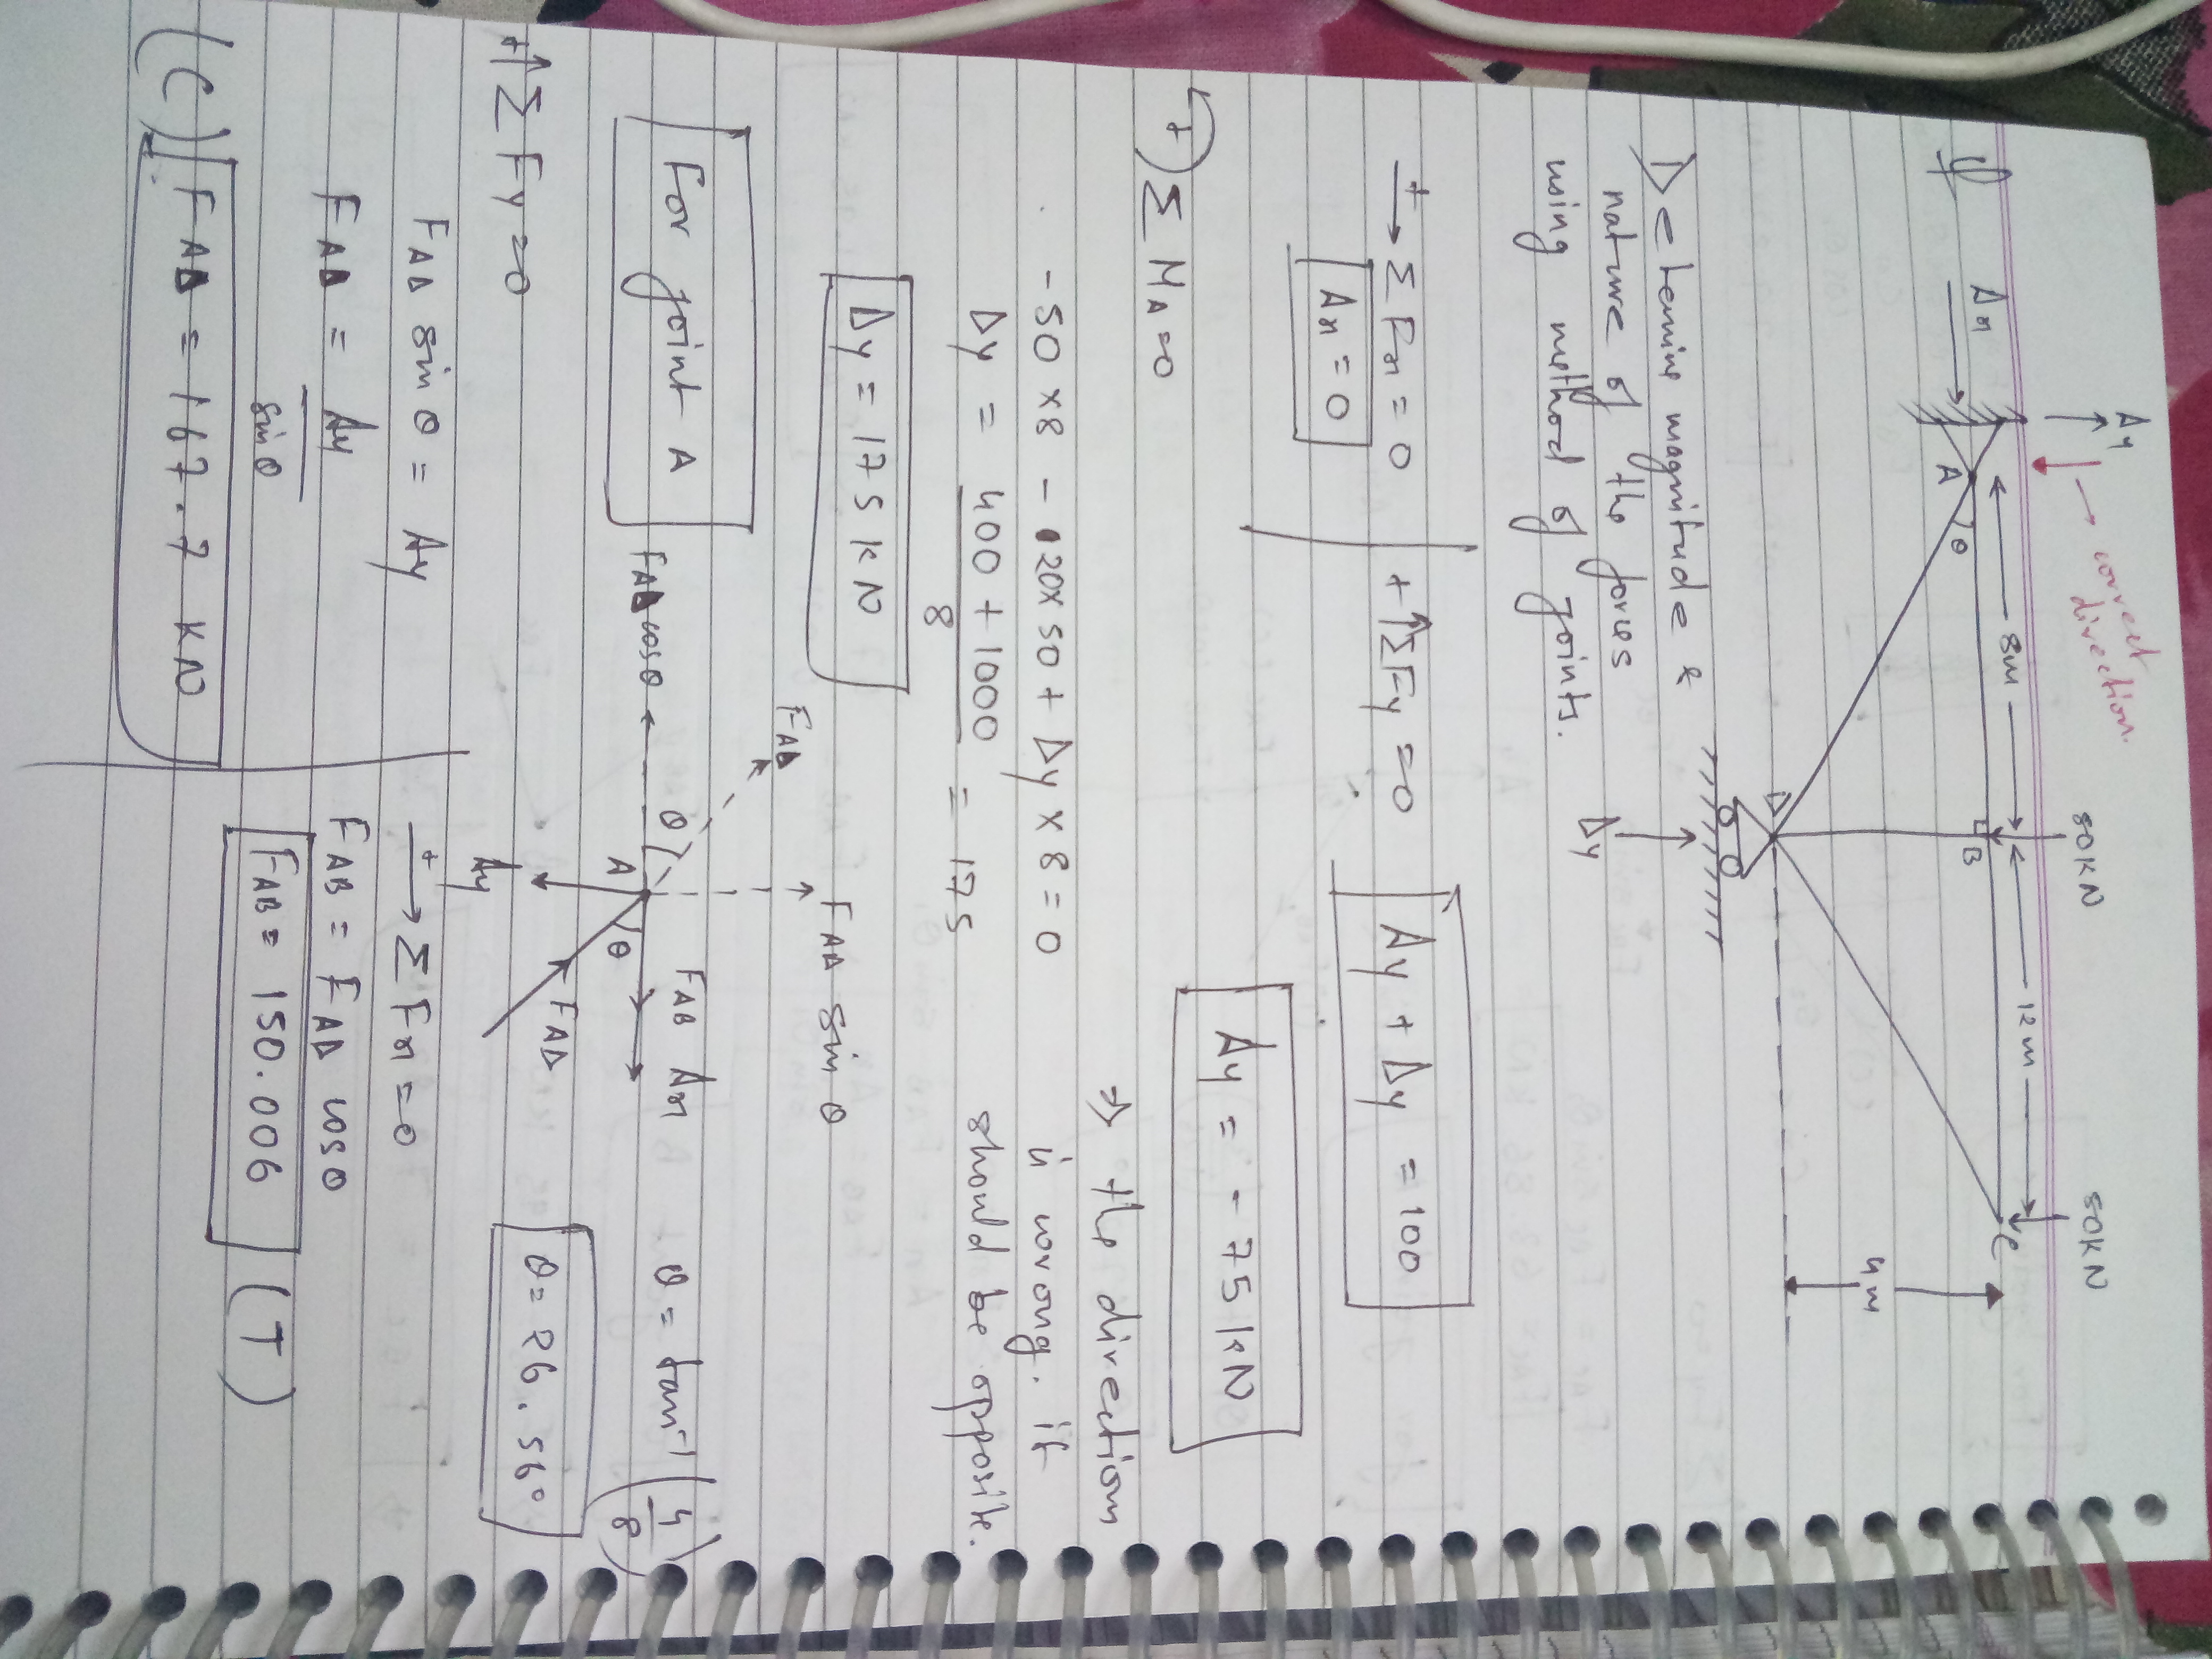 Ay
correct
direction.
80KN
50KN
8m
12m
φ
Ax
A
θ
B
C
4m
D
Dy
Determine magnitude &
nature of the forces
using method of joints.
+→ Σ Fx = 0
Ax = 0
+↑ΣFy = 0
Ay + Dy = 100
Ay = - 75 kN
+ Σ MA = 0
⇒ the direction
is wrong. it
should be opposite.
-50 x8 - 20x 50 + Dy x 8 = 0
Dy = (400 + 1000)/8 = 175
Dy = 175 KN
For joint A
FAD
FAD sin θ
FAD cosθ
θ
FAB Ax
A
θ
FAD
Ay
θ = tan⁻¹ (4/8)
θ = 26.56°
+↑ Σ Fy = 0
FAD sin θ = Ay
FAD = Ay/sin θ
(C) FAD = 167.7 KN
+→ Σ Fx = 0
FAB = FAD cosθ
FAB = 150.006 (T)